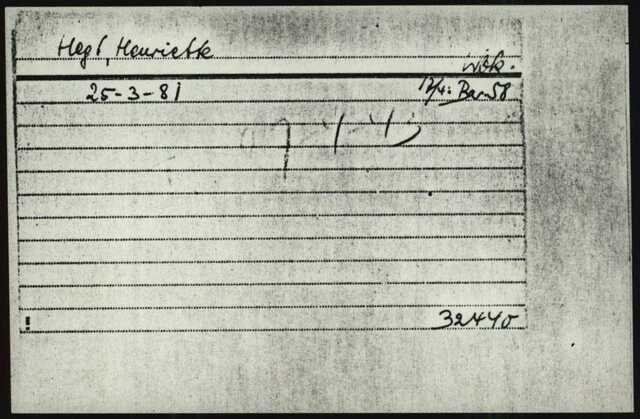 Hegt, Henriette
wok.
25-3-81 12/4: Bar 58
7-4-43
32440